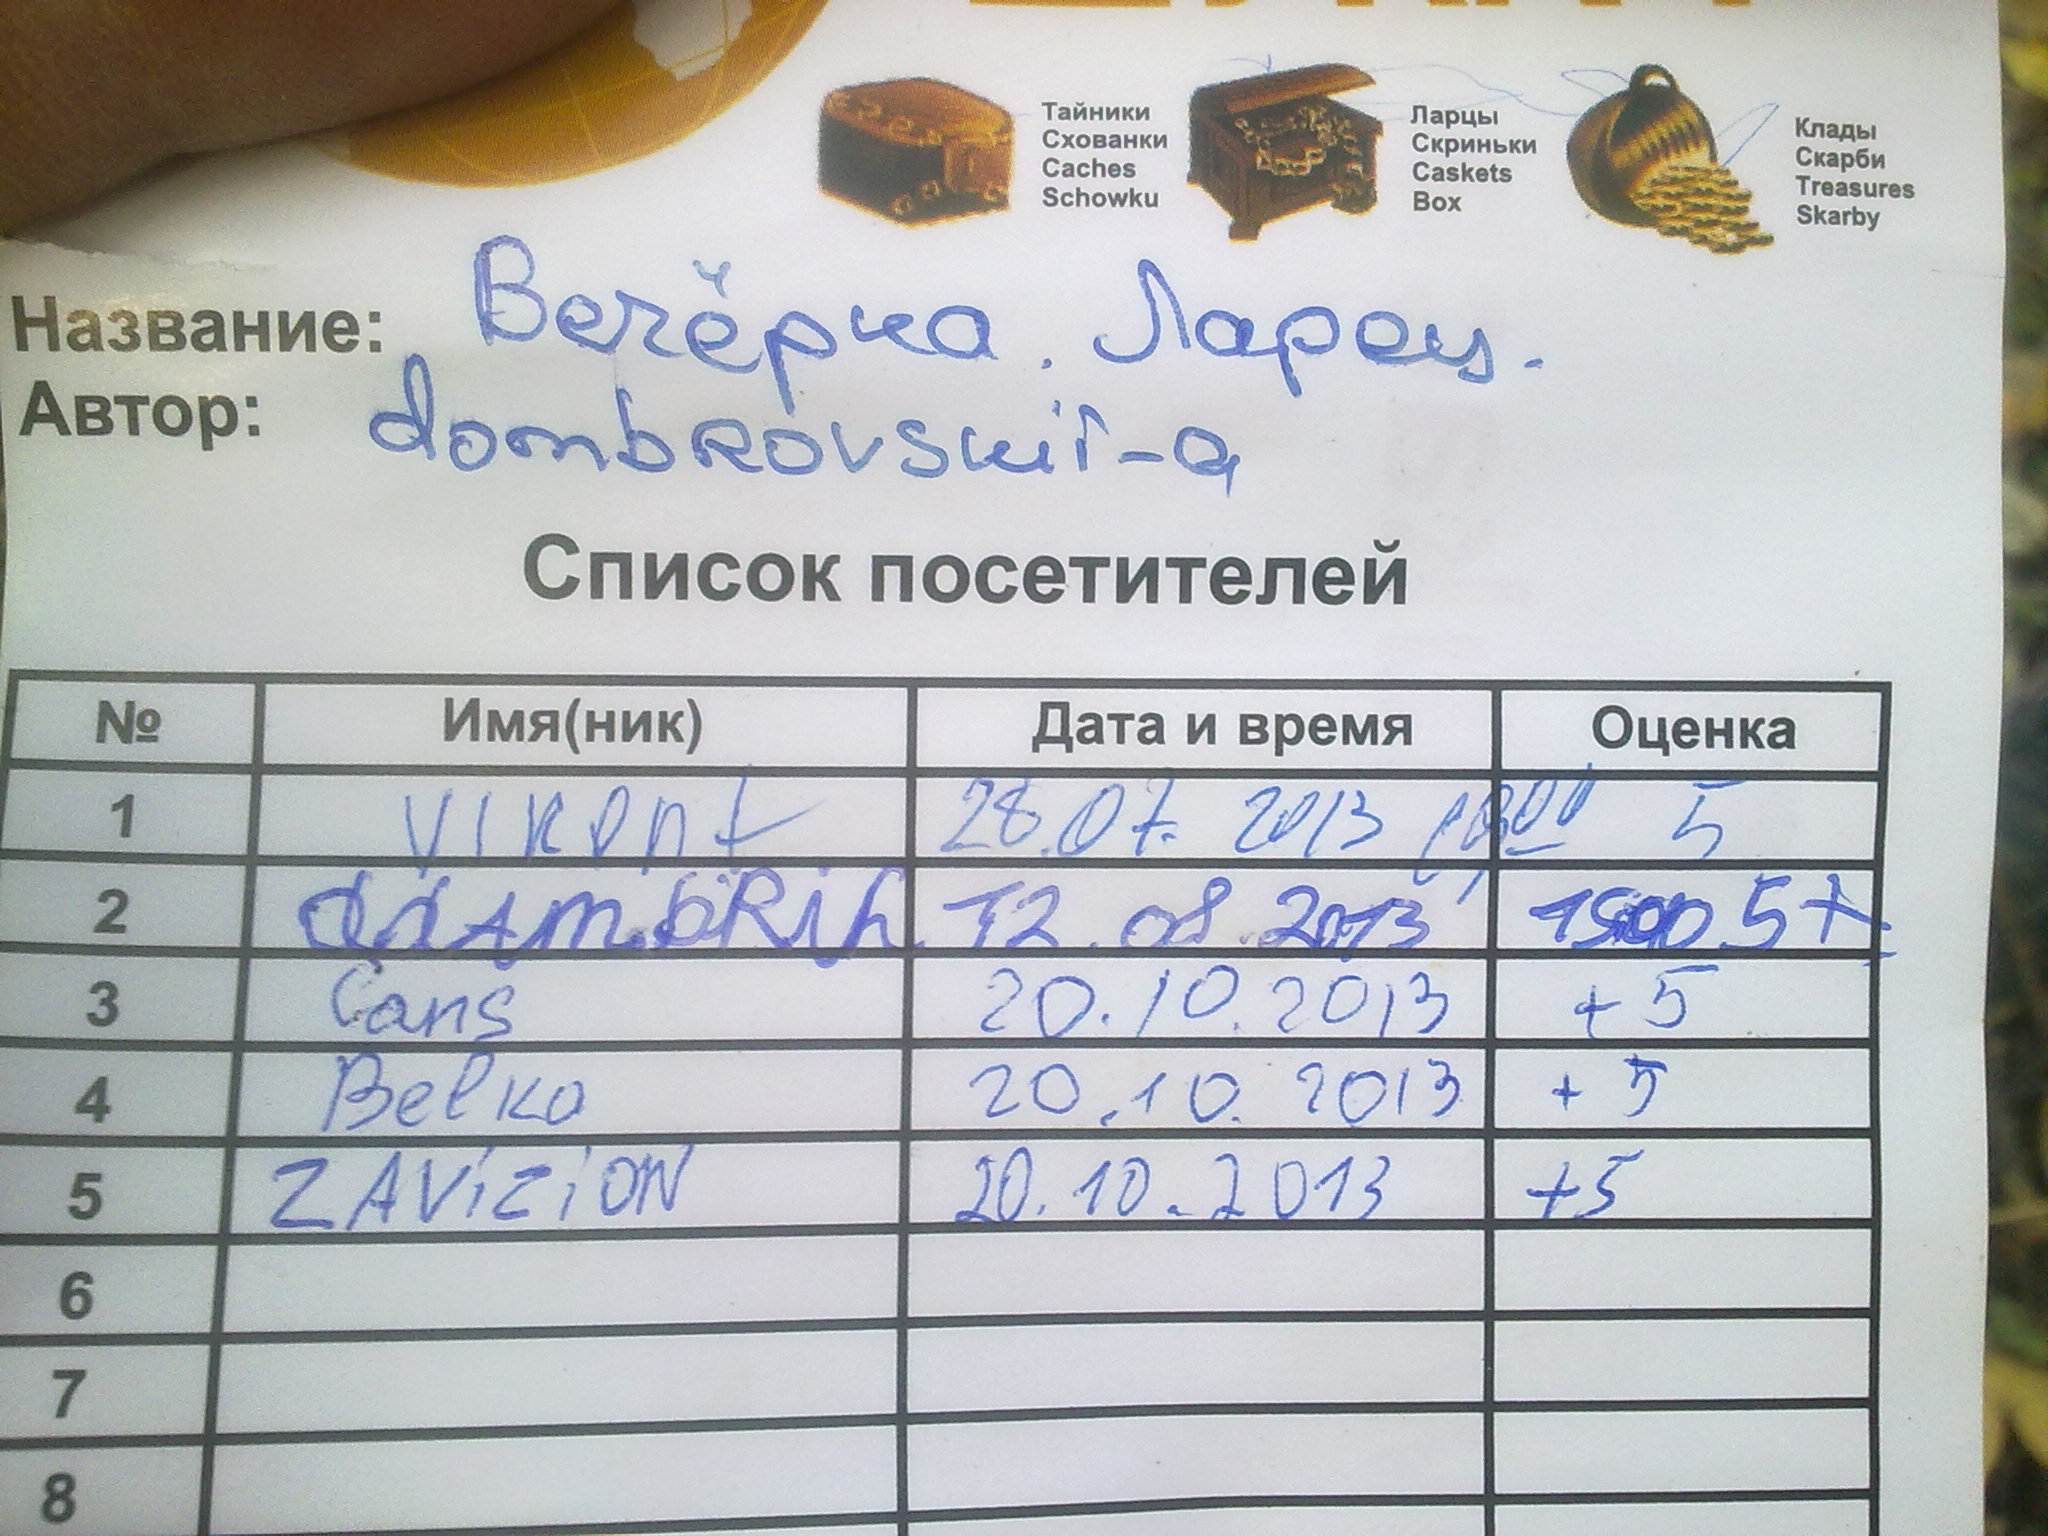 Тайники
Схованки
Caches
Schowku
Ларцы
Скриньки
Caskets
Box
Клады
Скарби
Treasures
Skarby
Название: Вечёрка. Ларец.
Автор: dombrovskii-a
Список посетителей
№ Имя(ник) Дата и время Оценка
1 VIKONT 28.07.2013 5
2 12.08.2013 5+
3 Cans 20.10.2013 +5
4 Belka 20.10.2013 +5
5 ZAViZiON 20.10.2013 +5
6
7
8